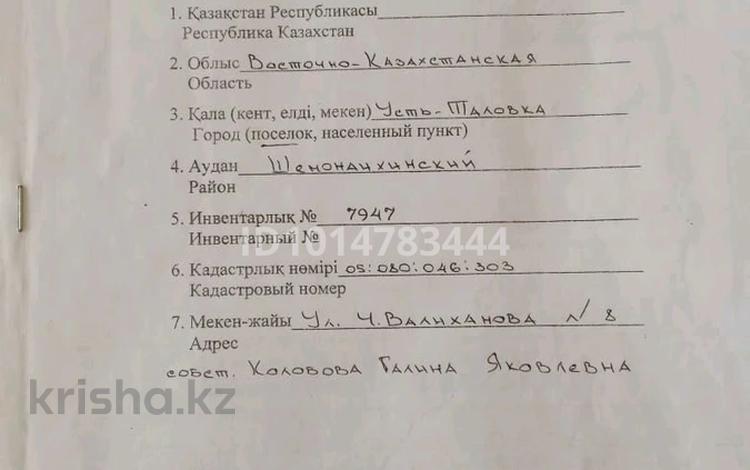 1. Қазақстан Республикасы
Республика Казахстан
2. Облыс Восточно-Казахстанская
Область
3. Қала (кент, елді, мекен) Усть-Таловка
Город (поселок, населенный пункт)
4. Аудан Шемонаихинский
Район
5. Инвентарлық № 7947
Инвентарный №
ID1014783444
6. Кадастрлық нөмірі 05:080:046:303
Кадастровый номер
7. Мекен-жайы Ул. Ч. Валиханова л/ 8
Адрес
собст. Холовова Галина Яковлевна
krisha.kz